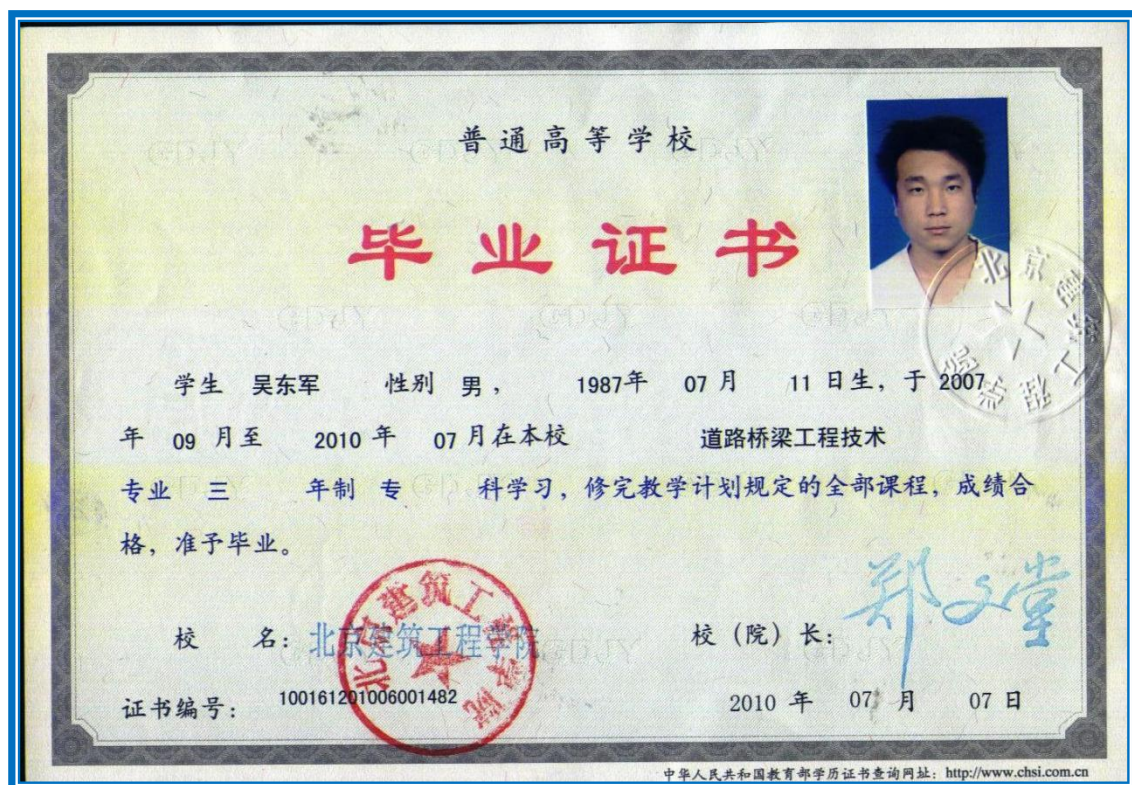 普通高等学校
毕业证书
学生 吴东军 性别 男, 1987年 07 月 11 日生, 于 2007
年 09 月至 2010 年 07 月在本校 道路桥梁工程技术
专业 三 年制 专 科学习, 修完教学计划规定的全部课程, 成绩合
格, 准予毕业。
校 名: 北京建筑工程学院
北京建筑工程学院
校 (院) 长: 郑文堂
证书编号: 100161201006001482
2010 年 07 月 07 日
中华人民共和国教育部学历证书查询网址: http://www.chsi.com.cn